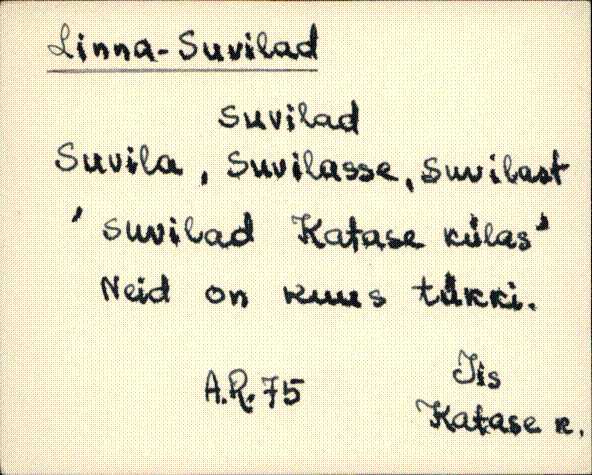 Linna-Suvilad
Suvilad
Suvila, Suvilasse, Suvilast
'suvilad Katase külas'
Neid on kuus tükki.
A.R. 75
Iis
Katase k.